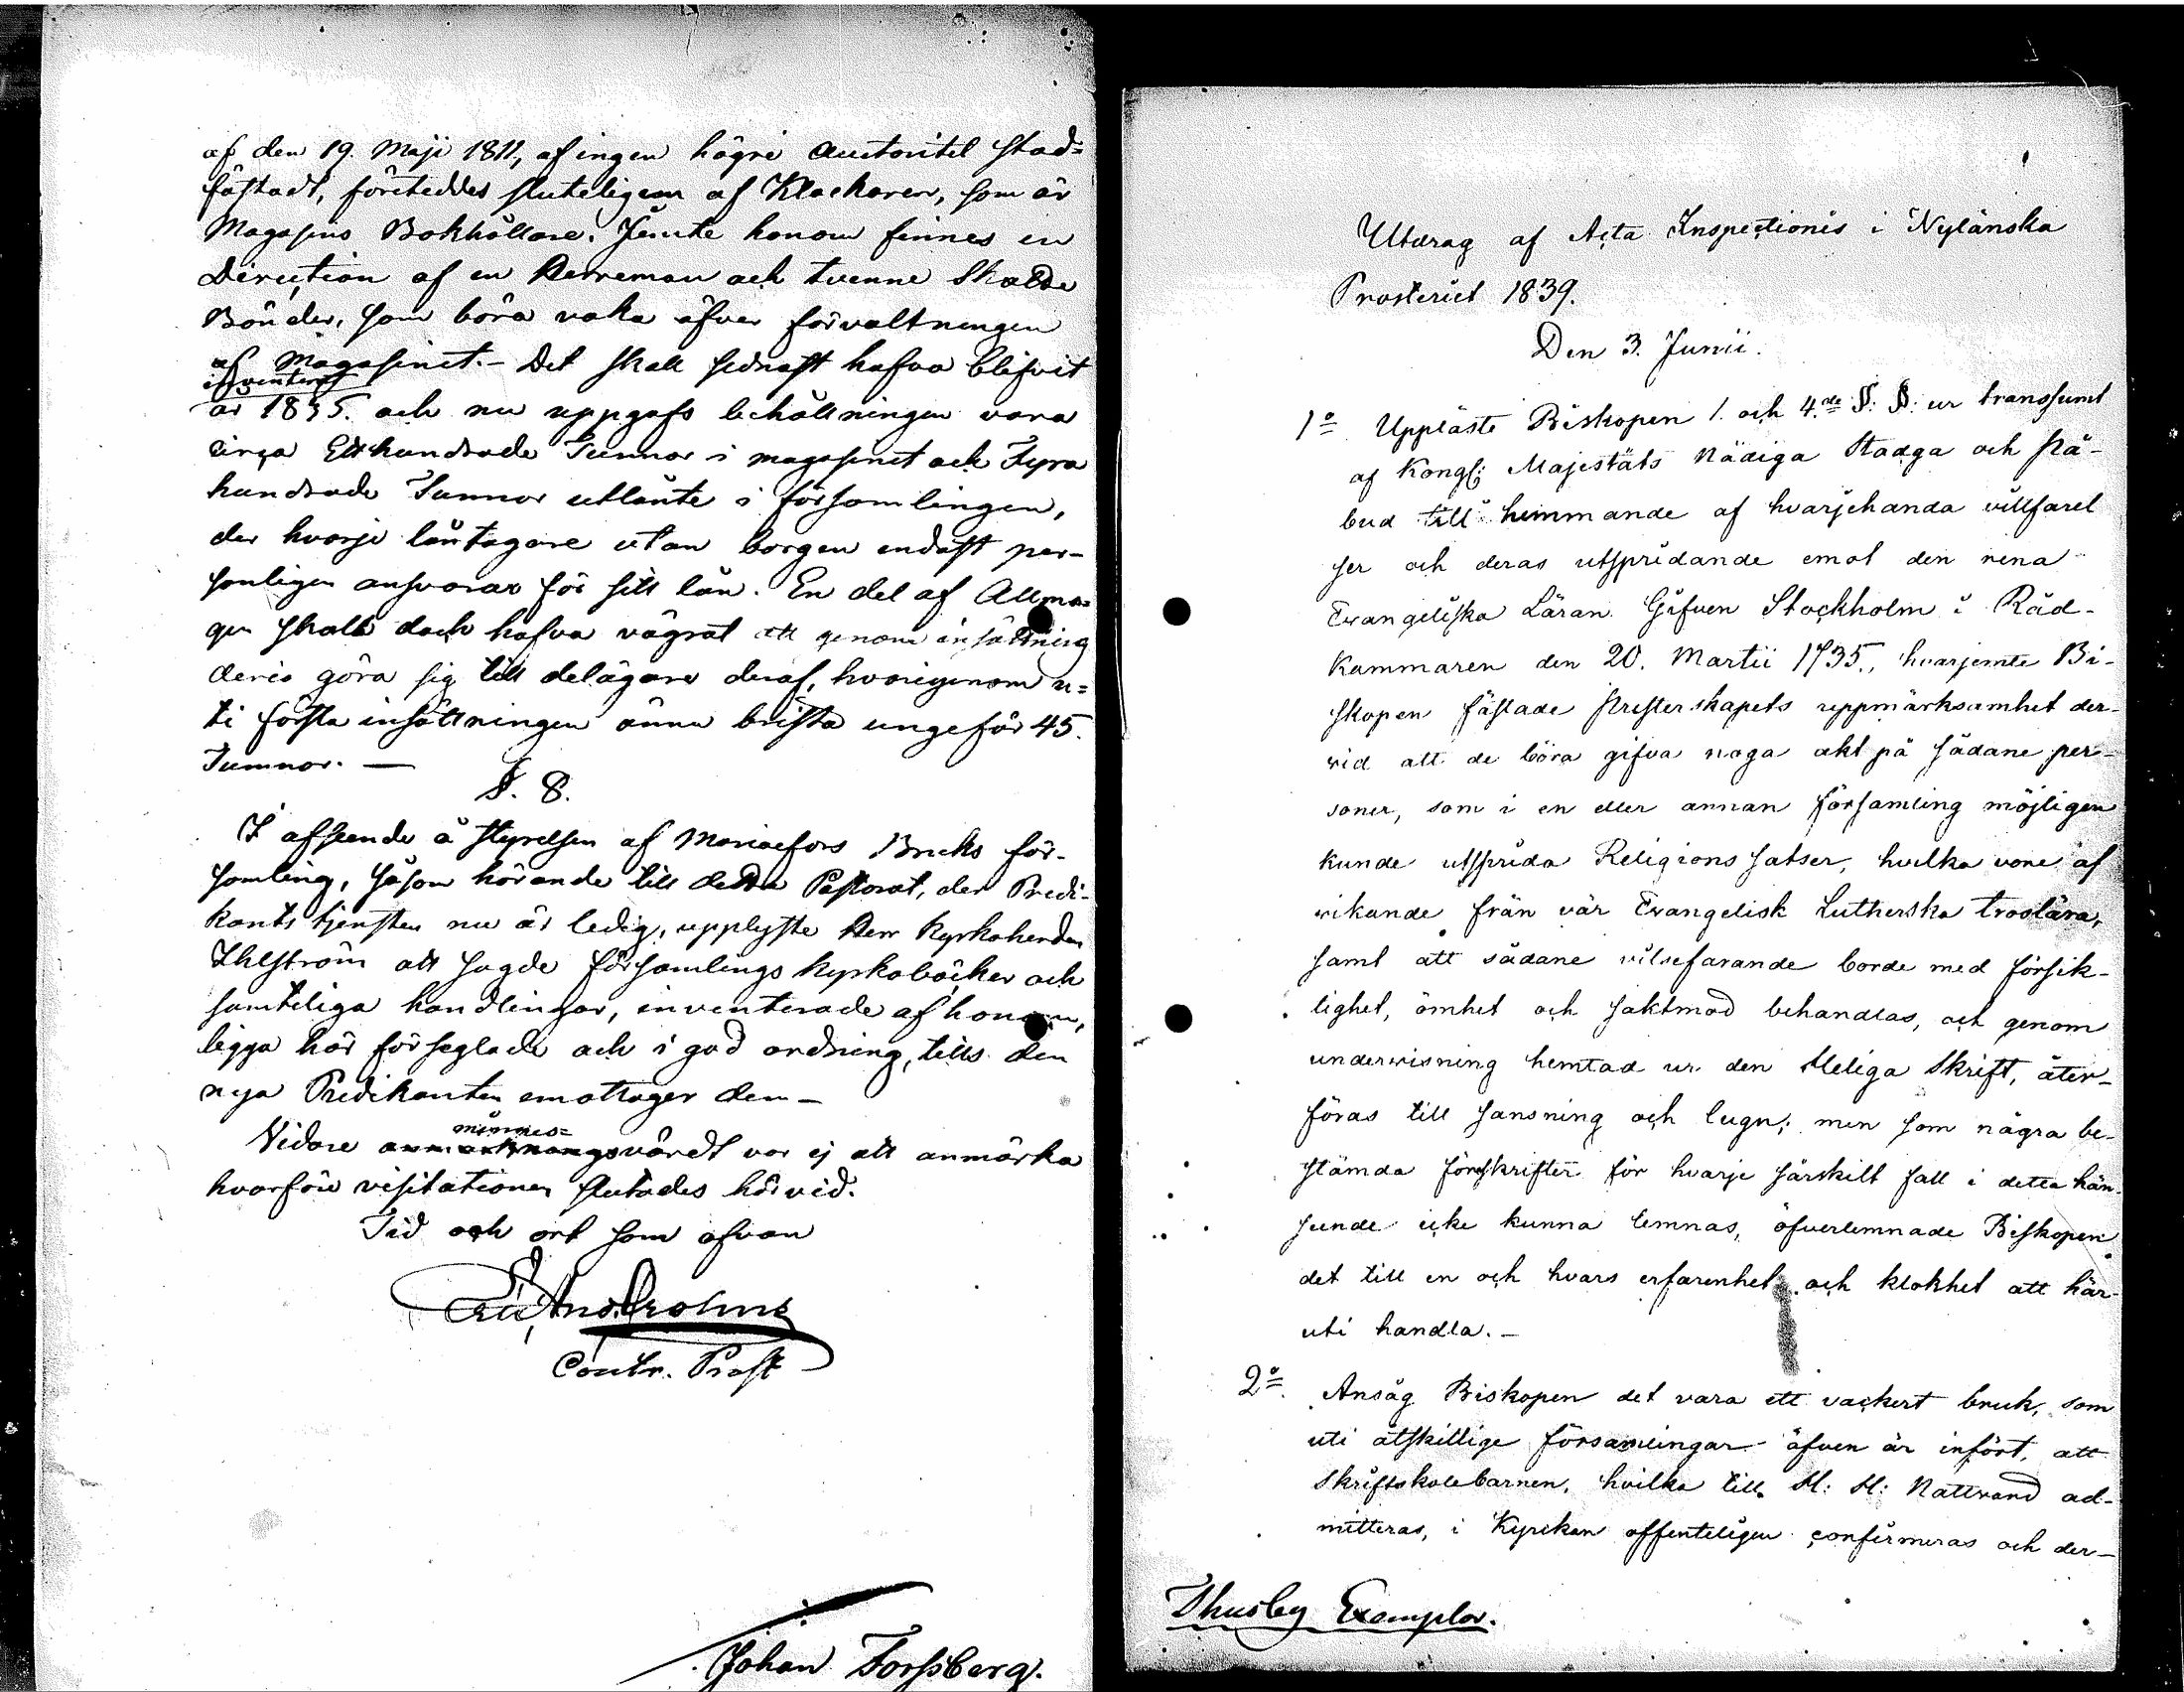 af den 19. Maji 1811, af ingen högre auctoritet stad=
fästadt, företeddes sluteligen af Klockaren, som är
Magasins Bokhållare. Jemte honom finnes en
Direction af en Herreman och tvenne Skatte
Bönder, som böra vaka öfver förvaltningen
af Magasinet. - Det skall sednast hafva blifvit
inventeradt
år 1835. och nu uppgafs behållningen vara
circa Etthundrade Tunnor i magasinet och Fyra
hundrade Tunnor utlånte i församlingen,
der hvarje låntagare utan borgen endast per-
sonligen ansvarar för sitt lån. En del af Allmo=
gen skall dock hafva vägrat att genom insättning
deris göra sig till delägare deraf, hvarigenom u=
ti första insättningen ännu brista ungefär 45.
Tunnor. —
§. 8.
I afseende å styrelsen af Mariaefors Bruks för-
samling, såsom hörande till detta Pastorat, der Predi-
kants tjensten nu är ledig, upplyste Herr Kyrkoherden
Ihlström att sagde församlings kyrkoböcker och
samteliga handlingar, inventerade af honom,
ligga här förseglade och i god ordning, tills den
nya Predikanten emottager dem -
minnes=
Vidare anmärkningsvärdt var ej att anmärka
hvarföre visitationen slutades härvid.
Tid och ort som ofvan
Contr. Prost
Johan Forssberg.
Utdrag af Acta Inspectionis i Nyländska
Prosteriet 1839.
Den 3. Junii.
1º Uppläste Biskopen 1. och 4.de §. §. ur transsumt
af Kongl: Majestäts Nådiga Stadga och På-
bud till hemmande af hvarjehanda villfarel
ser och deras utspridande emot den rena
Evangeliska Läran. Gifven Stockholm i Råd-
Kammaren den 20. Martii 1735., hvarjemte Bi-
skopen fästade Presterskapets uppmärksamhet der-
vid att de böra gifva noga akt på sådane per-
soner, som i en eller annan församling möjligen
kunde utsprida Religions satser, hvilka vore af
vikande från vår Evangelisk Lutherska troslära,
samt att sådane vilsefarande borde med försik-
lighet, ömhet och saktmod behandlas, och genom
undervisning hemtad ur den Heliga Skrift, åter-
föras till sansning och lugn; men som några be-
stämda föreskrifter för hvarje särskilt fall i detta hän-
seende icke kunna lemnas, öfverlemnade Biskopen
det till en och hvars erfarenhet och klokhet att här-
uti handla. -
2º. Ansåg Biskopen det vara ett vackert bruk, som
uti åtskillige församlingar äfven är infört, att
Skriftskolebarnen, hvilka till H: H: Nattvard ad-
mitteras, i Kyrkan offenteligen confirmeras och der-
Thusby Exemplar.